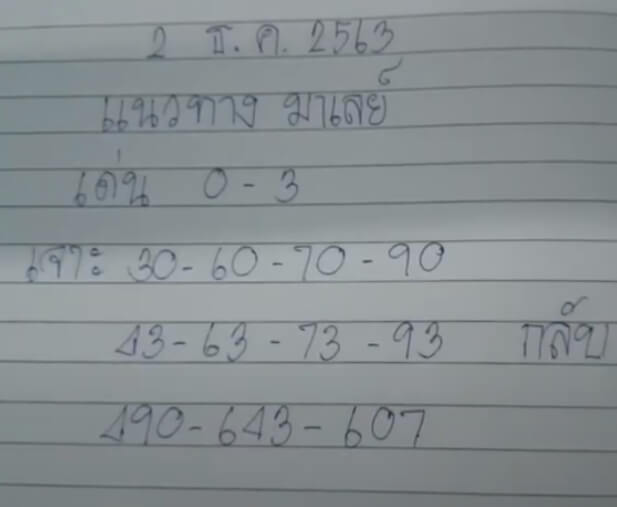 2 ธ.ค. 2563
แนวทาง มาเลย์
เด่น 0-3
เจาะ 30-60-70-90
43-63-73-93 กลับ
490-643-607